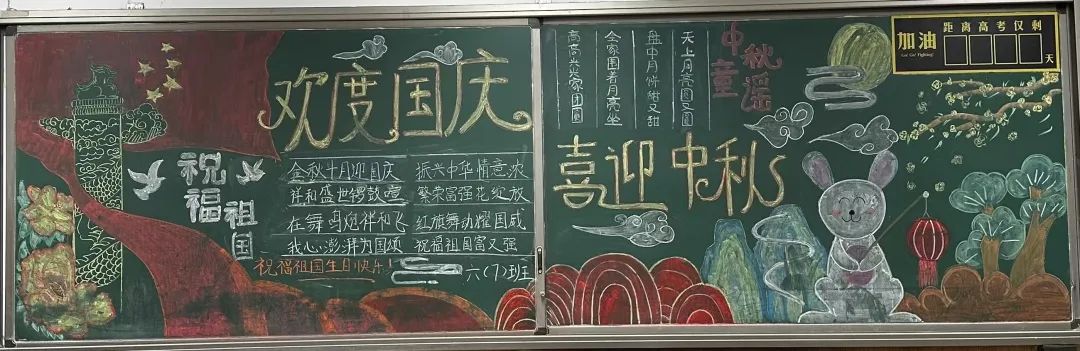 欢度国庆
祝福
祖国
金秋十月迎国庆 振兴中华情意浓
祥和盛世锣鼓 繁荣富强花绽放
炮伴和飞 红旗舞动耀国威
我心澎湃为国颂 祝福祖国富又强
祝福祖国生日快乐！
六(7)班
中秋
童谣
天上月亮圆又圆
盘中月饼甜又甜
全家围着月亮坐
高高兴兴家团圆
喜迎中秋
加油
Go! Go! Fighting!
距离高考仅剩
天